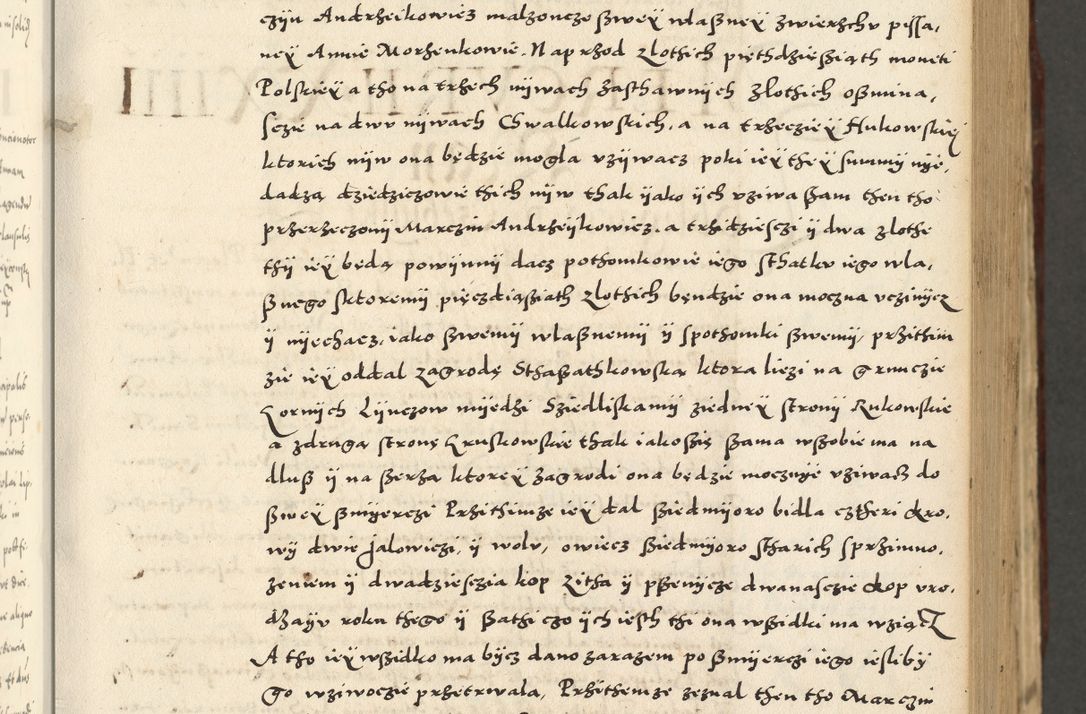 czÿu Andrzeikowiez malzoncze sswey wlassney zwierzchv pissa,
ney Annie Morzenkowie. Naprzod zlothich pięthdziessiąth moneti
Polskiey a tho na trzech nÿwach zasthawnÿch zlothich ossmna,
sczie na dwv nÿwach Chwalkowskich. a na trzecziey Hukowskiey
ktorich nÿw ona będzie mogla vzÿwacz poki iey they summÿ nÿe,
dadzą dziedziczowie thich nÿw thak ÿako ÿch vziwa ssam then tho
przerzeczonÿ Marczin Andrzeÿkowicz. a trzidziesczi ÿ dwa zlothe
thÿ iey będą powÿnnÿ dacz pothomkowie iego sthatkv iego wla,
ssnego sktoremÿ pięczdząssiath zlothich bęndzie ona moczna vczinÿcz
ÿ nÿechacz, iako sswemÿ wlassnemÿ ÿ spothomki sswemÿ, przithim
zie iey oddal zagrodę Sthassathkowską ktora liezi na grunczie
Gornÿch Lÿnczow mÿedzi Sziedliskamÿ ziedney stronÿ Rukowskie
a zdrugą stronę Gruskowskie thak iakoszię ssama wssobie ma na
dluss ÿ na sserzą ktorey zagrodi ona będzie mocznÿe vziwacz do
sswey ssmÿerczi Przithimze iey dal ssiedmÿoro bidla cztheri kro,
wÿ dwie jalowiczi, ÿ wolv, owiecz ssiedmÿoro stharich sprzimno,
zeniem ÿ dwadziesczia kop zitha ÿ pssenÿcze dwanasczie kop vro,
dzaÿv rokv thego ÿ ssathi czo ÿch iesth thi ona wssidki ma wziącz
A tho iey wssidko ma bÿcz dano zarazem po ssmÿerczi iego iesliby
go wziwoczie przetrwala, Przithemze zeznal then tho Marczin